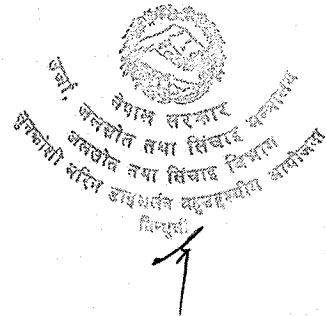 नेपाल सरकार
उर्जा, जलस्रोत तथा सिंचाइ मन्त्रालय
जलस्रोत तथा सिंचाइ विभाग
सुनकोशी मरिन डाइभर्सन बहुउद्देश्यीय आयोजना
सिन्धुली